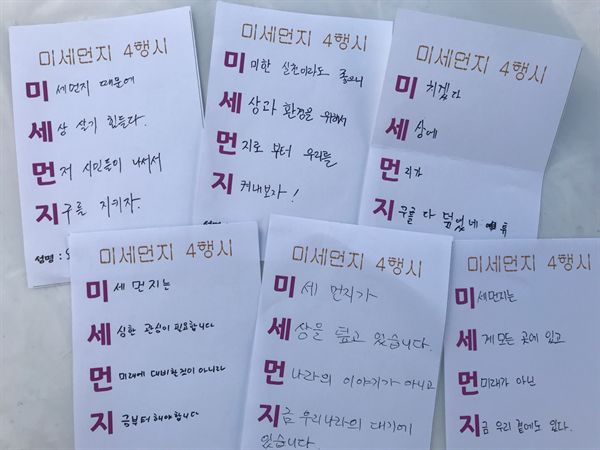 미세먼지 4행시
미세먼지 때문에
세상 살기 힘들다.
먼저 시민들이 나서서
지구를 지키자.
성명 :
미세먼지 4행시
미미한 실천이라도 좋으니
세상과 환경을 위해서
먼지로 부터 우리를
지켜내보자!
성명
미세먼지 4행시
미치겠다
세상에
먼지가
지구를 다 덮었네
미세먼지 4행시
미세 먼지는
세심한 관심이 필요합니다
먼미래에 대비할것이 아니라
지금부터해야합니다
미세먼지 4행시
미세 먼지가
세상을 덮고 있습니다.
먼 나라의 이야기가 아니고
지금 우리나라의 대기에
있습니다.
미세먼지 4행시
미세먼지는
세계 모든 곳에 있고
먼미래가 아닌
지금 우리 곁에도 있다.